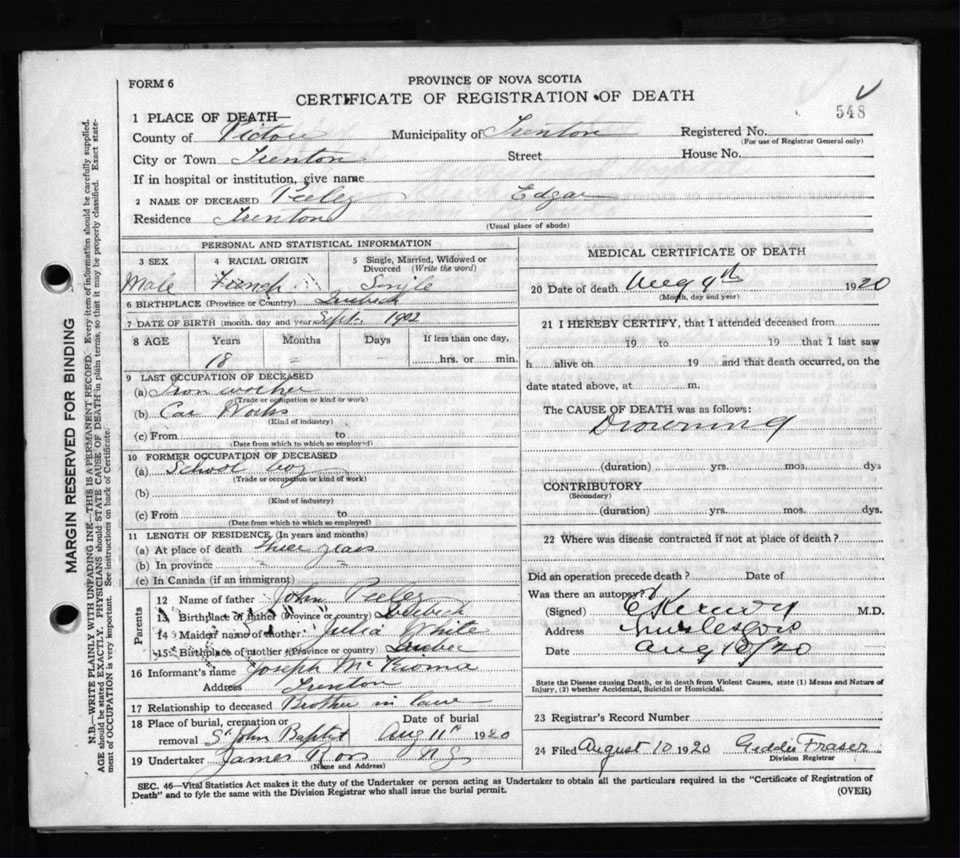 FORM 6
PROVINCE OF NOVA SCOTIA
CERTIFICATE OF REGISTRATION OF DEATH
548
1 PLACE OF DEATH—
County of Pictou Municipality of Trenton Registered No.
(For use of Registrar General only)
City or Town Trenton Street House No.
If in hospital or institution, give name
2 NAME OF DECEASED Edgar
Residence Trenton
(Usual place of abode)
PERSONAL AND STATISTICAL INFORMATION
3 SEX 4 RACIAL ORIGIN 5 Single, Married, Widowed or Divorced (Write the word)
Male French Single
6 BIRTHPLACE (Province or Country) Quebeck
7 DATE OF BIRTH (month, day and year) Sept. 1902
8 AGE Years Months Days If less than one day,
18 hrs. or min.
9 LAST OCCUPATION OF DECEASED
(a) Iron worker
(Trade or occupation or kind or work)
(b) Car Works
(Kind of industry)
(c) From to
(Date from which to which so employed)
10 FORMER OCCUPATION OF DECEASED
(a) School boy
(Trade or occupation or kind of work)
(b)
(Kind of industry)
(c) From to
(Date from which to which so employed)
11 LENGTH OF RESIDENCE (In years and months)
(a) At place of death three years
(b) In province " "
(c) In Canada (if an immigrant)
Parents
12 Name of father John
13 Birthplace of father (Province or country) Quebeck
14 Maiden name of mother Julia White
15 Birthplace of mother (Province or country) Quebec
16 Informant's name Joseph
Address Trenton
17 Relationship to deceased Brother in law
18 Place of burial, cremation or removal St John Baptist
Date of burial Aug 11th 1920
19 Undertaker James Ross N.G.
(Name and Address)
MEDICAL CERTIFICATE OF DEATH
20 Date of death Aug 9th 1920
(Month, day and year)
21 I HEREBY CERTIFY, that I attended deceased from
19 to 19 that I last saw
h alive on 19 and that death occurred, on the
date stated above, at m.
The CAUSE OF DEATH was as follows:
Drowning
(duration) yrs. mos. dys
CONTRIBUTORY
(Secondary)
(duration) yrs. mos. dys.
22 Where was disease contracted if not at place of death?
Did an operation precede death? Date of
Was there an autopsy?
(Signed) M.D.
Address
Date Aug 10/20
State the Disease causing Death, or in death from Violent Causes, state (1) Means and Nature of
Injury, (2) whether Accidental, Suicidal or Homicidal.
23 Registrar's Record Number
24 Filed August 10 1920 Geddie Fraser
Division Registrar
SEC. 46—Vital Statistics Act makes it the duty of the Undertaker or person acting as Undertaker to obtain all the particulars required in the "Certificate of Registration of
Death" and to fyle the same with the Division Registrar who shall issue the burial permit.
(OVER)
MARGIN RESERVED FOR BINDING
N.B.—WRITE PLAINLY WITH UNFADING INK—THIS IS A PERMANENT RECORD. Every item of information should be carefully supplied.
AGE should be stated EXACTLY. PHYSICIANS should STATE CAUSE OF DEATH in plain terms, so that it may be properly classified. Exact state-
ment of OCCUPATION is very important. See instructions on back of Certificate.